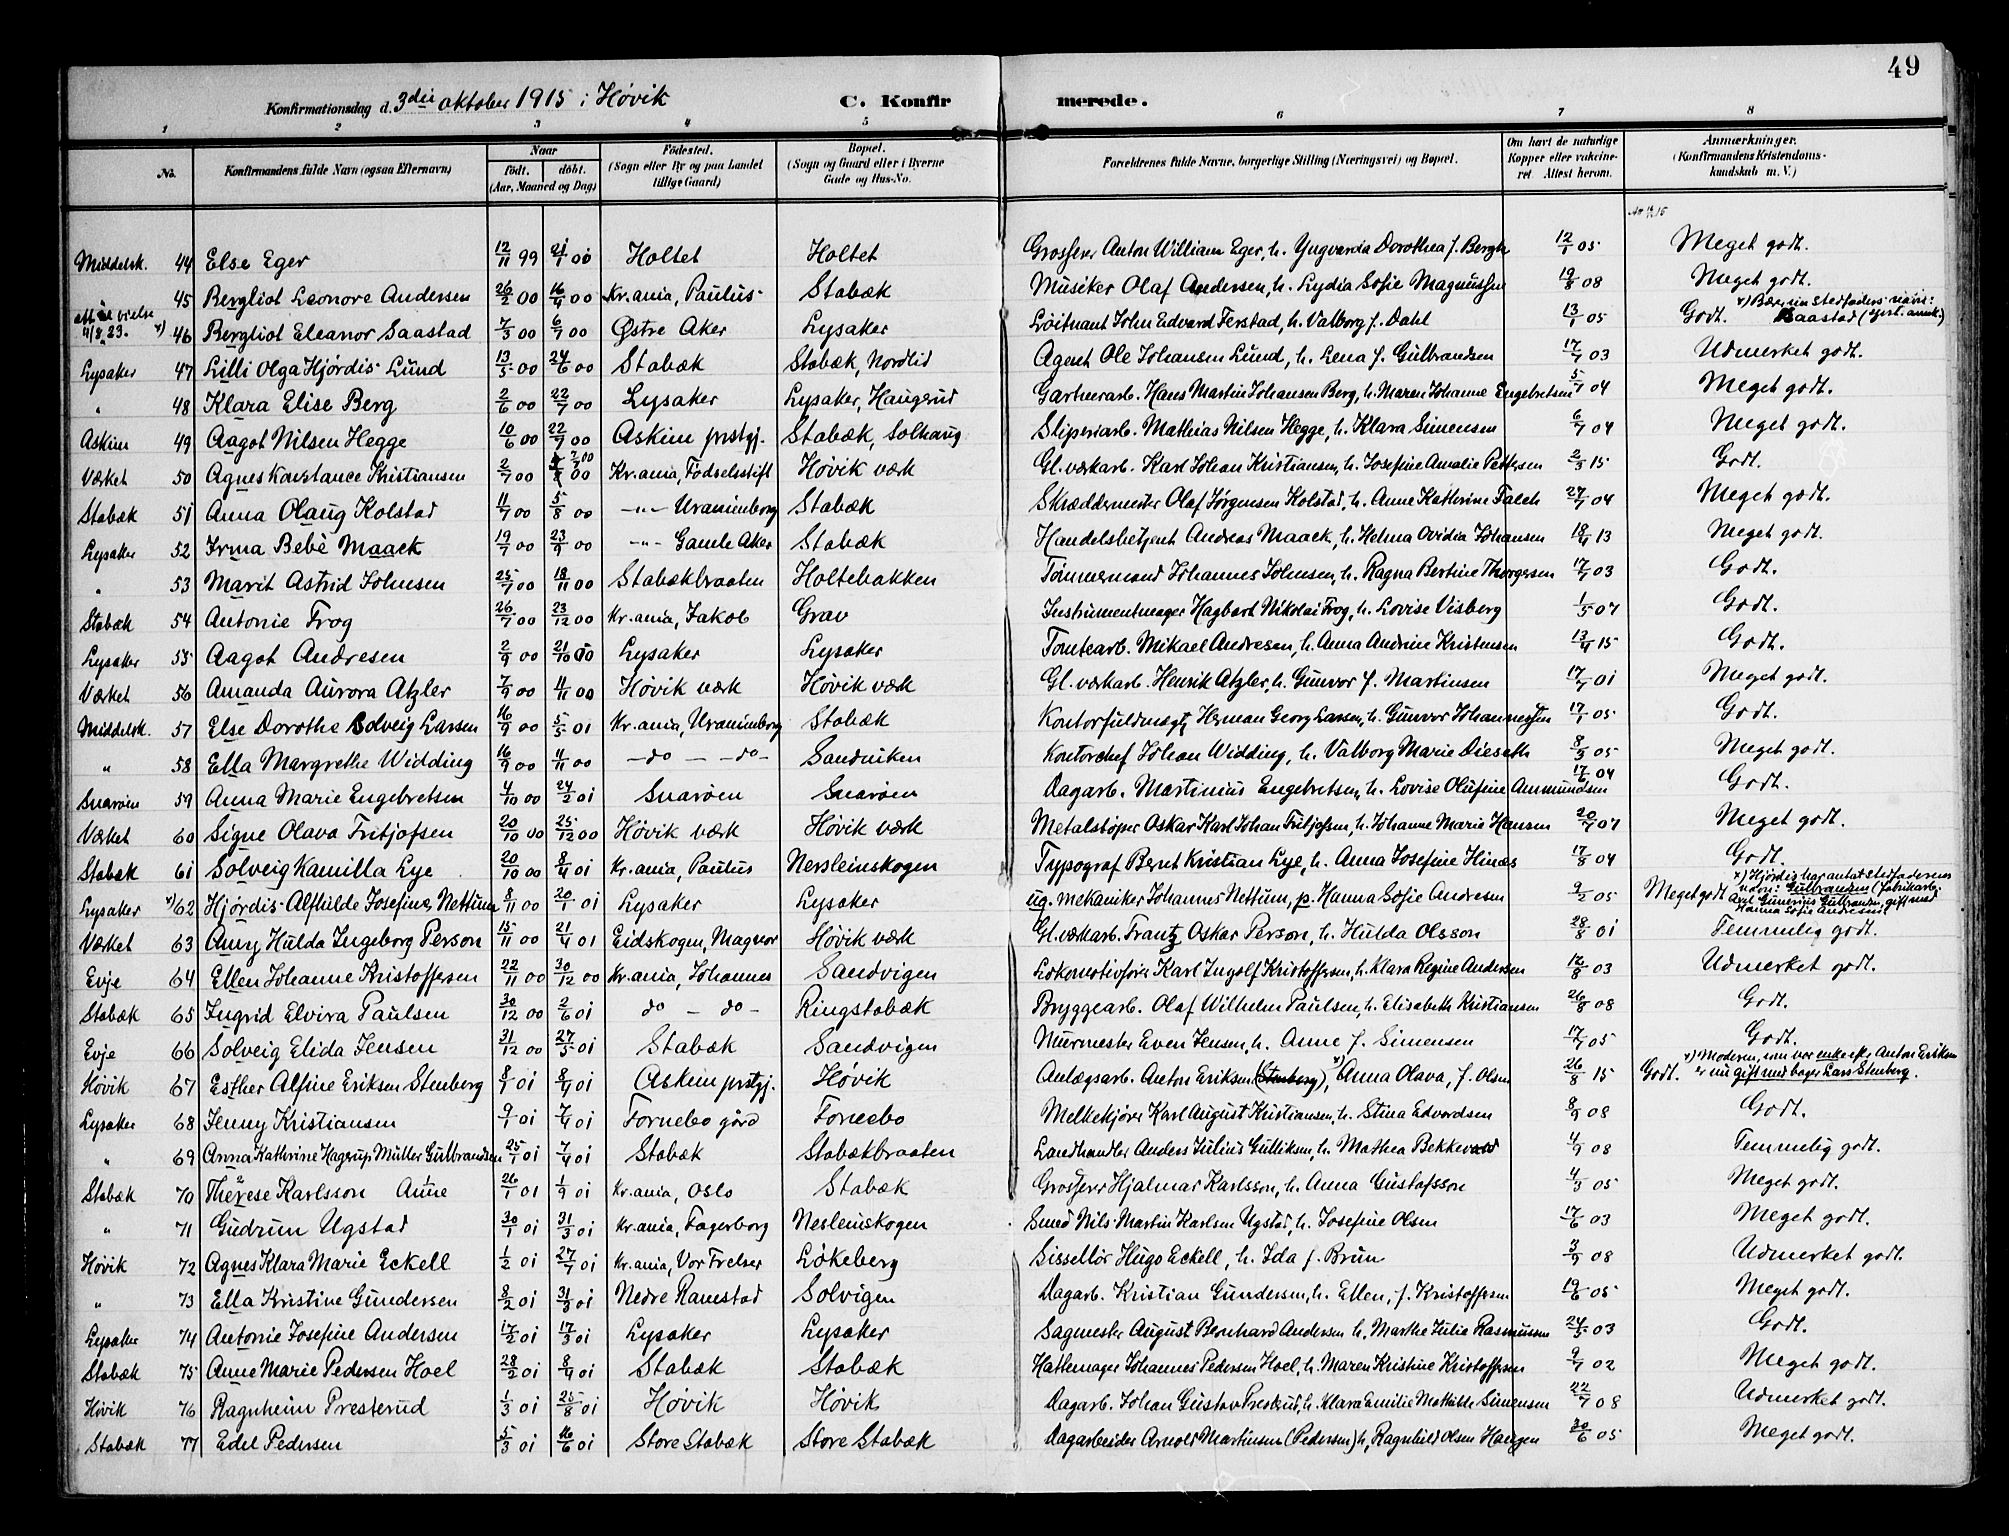 49
Konfirmationsdag d. 3die oktober 1915 i Høvik C. Konfirmerede.
1 2 3 4 5 6 7 8
No. Konfirmandens fulde Navn (ogsaa Efternavn) Naar født. døbt. (Aar, Maaned og Dag) Fødested. (Sogn eller By og paa Landet tillige Gaard) Bopæl. (Sogn og Gaard eller i Byerne Gade og Hus-No. Forældrenes fulde Navne, borgerlige Stilling (Næringsvei) og Bopæl. Om havt de naturlige Kopper eller vaccineret. Attest herom. Anmærkninger. (Konfirmandens Kristendomskundskab m. V.)
Middelsk. 44 Else Eger 12/11 99 21/1 00 Holtet Holtet Grosserer Anton William Eger, h. Yngvarda Dorothea f. Bergh 12/1 05 Meget godt.
45 Bergliot Leonore Andersen 26/2 00 16/4 00 Kr.ania, Paulus Stabæk Musiker Olaf Andersen, h. Lydia Sofie Magnussen 19/8 08 Meget godt.
4/8 23. x) 46 Bergliot Eleanor Saastad 7/3 00 6/7 00 Østre Aker Lysaker Løitnant John Edvard Ferstad, h. Valborg f. Dahl 13/1 05 Godt. x) Bærer sin stedfaders navn: Saastad
Lysaker 47 Lilli Olga Hjørdis Lund 13/5 00 24/6 00 Stabæk Stabæk, Nordlid Agent Ole Johansen Lund, h. Lena f. Gulbrandsen 17/7 03 Udmerket godt.
" 48 Klara Elise Berg 2/6 00 22/7 00 Lysaker Lysaker, Haugerud Gartnerarb. Hans Martin Johansen Berg, h. Maren Johanne Engebretsen 5/7 04 Meget godt.
Askim 49 Aagot Nilsen Hegge 10/6 00 22/7 00 Askim prstgj. Stabæk, Solhaug Sliperiarb. Mathias Nilsen Hegge, h. Klara Simensen 6/7 04 Meget godt.
Værket 50 Agnes Konstance Kristiansen 2/7 00 Kr.ania, Fødselsstift Høvik værk Gl.værkarb. Karl Johan Kristiansen, h. Josefine Amalie Pettersen 2/3 15 Godt.
Stabæk 51 Anna Olaug Kolstad 11/7 00 5/8 00 -"- Uranienborg Stabæk Skræddermester Olaf Jørgensen Kolstad, h. Anne Kathrine Falch 27/7 04 Meget godt.
Lysaker 52 Irma Bebè Maack 19/7 00 23/9 00 -"- Gamle Aker Stabæk Handelsbetjent Andreas Maack, h. Helma Ovidia Johansen 18/4 13 Meget godt.
" 53 Marit Astrid Johnsen 25/7 00 18/11 00 Stabækbraaten Holtebakken Tømmermand Johannes Johnsen, h. Ragna Bertine Thorgersen 17/7 03 Godt.
Stabæk 54 Antonie Frog 26/7 00 23/12 00 Kr.ania, Jakob Grav Instrumentmager Hagbart Nikolai Frog, h. Lovise Visberg 1/5 07 Godt.
Lysaker 55 Aagot Andresen 2/9 00 21/10 00 Lysaker Lysaker Tomtearb. Mikael Andresen, h. Anna Andrine Kristensen 13/4 15 Godt.
Værket 56 Amanda Aurora Atzler 7/9 00 11/11 00 Høvik værk Høvik værk Gl.værkarb. Henrik Atzler, h. Gunvor f. Martinsen 17/7 01 Meget godt.
Middelsk. 57 Else Dorothe Solveig Larsen 16/9 00 5/5 01 Kr.ania, Uranienborg Stabæk Kontorfuldmægt. Herman Georg Larsen, h. Gunvor Johannessen 17/1 05 Godt.
" 58 Ella Margrethe Widding 16/9 00 4/11 00 -do- -do- Sandviken Kontorchef Johan Widding, h. Valborg Marie Dieseth 8/3 05 Meget godt.
Snarøen 59 Anna Marie Engebretsen 4/10 00 24/2 01 Snarøen Snarøen Dagarb. Martinius Engebretsen, h. Lovise Olufine Ammundsen 17/6 04 Godt.
Værket 60 Signe Olava Fritjofsen 20/10 00 25/12 00 Høvik værk Høvik værk Metalstøper Oskar Karl Johan Fritjofsen, h. Johanne Marie Hansen 20/7 07 Meget godt.
Stabæk 61 Solveig Kamilla Lye 20/10 00 8/4 01 Kr.ania, Paulus Nersleinskogen Typograf Bernt Kristian Lye, h. Anna Josefine Hinæs 17/8 04 Godt.
Lysaker x) 62 Hjørdis Alfhilde Josefine Nettum 8/11 00 20/1 01 Lysaker Lysaker ug. mekaniker Johannes Nettum, p. Hanna Sofie Andresen 9/2 05 Meget godt x) Hjørdis har antat stedfaderens navn: Gulbrandsen (fabrikarb. Axel Gunerius Gulbrandsen, gift med Hanna Sofie Andresen)
Værket 63 Amy Hulda Ingeborg Person 15/11 00 21/4 01 Eidskogen, Magnor Høvik værk Gl.værkarb. Frantz Oskar Person, h. Hulda Olsson 28/8 01 Temmelig godt.
Evje 64 Ellen Johanne Kristoffersen 22/11 00 30/12 00 Kr.ania, Johannes Sandvigen Lokomotivfører Karl Ingolf Kristoffersen, h. Klara Regine Andersen 12/8 03 Udmerket godt.
Stabæk 65 Ingrid Elvira Paulsen 30/12 00 2/6 01 do - do - Ringstabæk Bryggearb. Olaf Wilhelm Paulsen, h. Elisabeth Kristiansen 26/8 08 Godt.
Evje 66 Solveig Elida Jensen 31/12 00 27/5 01 Stabæk Sandvigen Murmester Even Jensen, h. Anne f. Simensen 17/7 05 Godt.
Høvik 67 Esther Alfine Eriksen Stenberg 8/1 01 8/4 01 Askim prstgj. Høvik Anlægsarb. Anton Eriksen (Stenberg), x) Anna Olava, f. Olsen 26/8 15 Godt. x) Moderen, som var enke efter Anton Eriksen er nu gift med bager Lars Stenberg.
Lysaker 68 Jenny Kristiansen 9/1 01 7/4 01 Fornebo gård Fornebo Melkekjører Karl August Kristiansen, h. Stina Edvardsen 8/9 08 Godt.
" 69 Anna Kathrine Hagerup Müller Gulbrandsen 25/1 01 7/4 01 Stabæk Stabækbraaten Landhandler Anders Julius Gulliksen, h. Mathea Bekkevold 4/9 08 Temmelig godt.
Stabæk 70 Thérese Karlsson Anne 26/1 01 1/9 01 Kr.ania, Oslo Stabæk Grosserer Hjalmar Karlsson, h. Anna Gustafsson 4/3 05 Meget godt.
" 71 Gudrun Ugstad 30/1 01 31/3 01 Kr.ania, Fagerborg Nesleinskogen Smed Nils Martin Karlsen Ugstad, h. Josefine Olsen 17/6 03 Meget godt.
Høvik 72 Agnes Klara Marie Eckell 1/2 01 27/7 01 Kr.ania, Vor Frelser Løkeberg Sisellør Hugo Eckell, h. Ida f. Brun 3/9 08 Udmerket godt.
" 73 Ella Kristine Gundersen 8/2 01 31/3 01 Nedre Ramstad Solvigen Dagarb. Kristian Gundersen, h. Ellen, f. Kristoffersen 19/6 05 Meget godt.
Lysaker 74 Antonie Josefine Andersen 17/2 01 17/3 01 Lysaker Lysaker Sagmester August Bernhard Andersen h. Marthe Julie Rasmussen 24/5 03 Godt.
Stabæk 75 Anne Marie Pedersen Hoel 28/2 01 8/4 01 Stabæk Stabæk Hattemager Johannes Pedersen Hoel, h. Maren Kristine Kristoffersen 9/7 02 Meget godt.
Høvik 76 Ragnheim Presterud 1/3 01 25/8 01 Høvik Høvik Dagarb. Johan Gustav Presterud, h. Klara Emilie Mathilde Simensen 22/7 08 Udmerket godt.
Stabæk 77 Edel Pedersen 5/3 01 16/6 01 Store Stabæk Store Stabæk Dagarbeider Arnold Martinsen (Pedersen) h, Ragnhild Olsen Haugen 30/6 05 Meget godt.